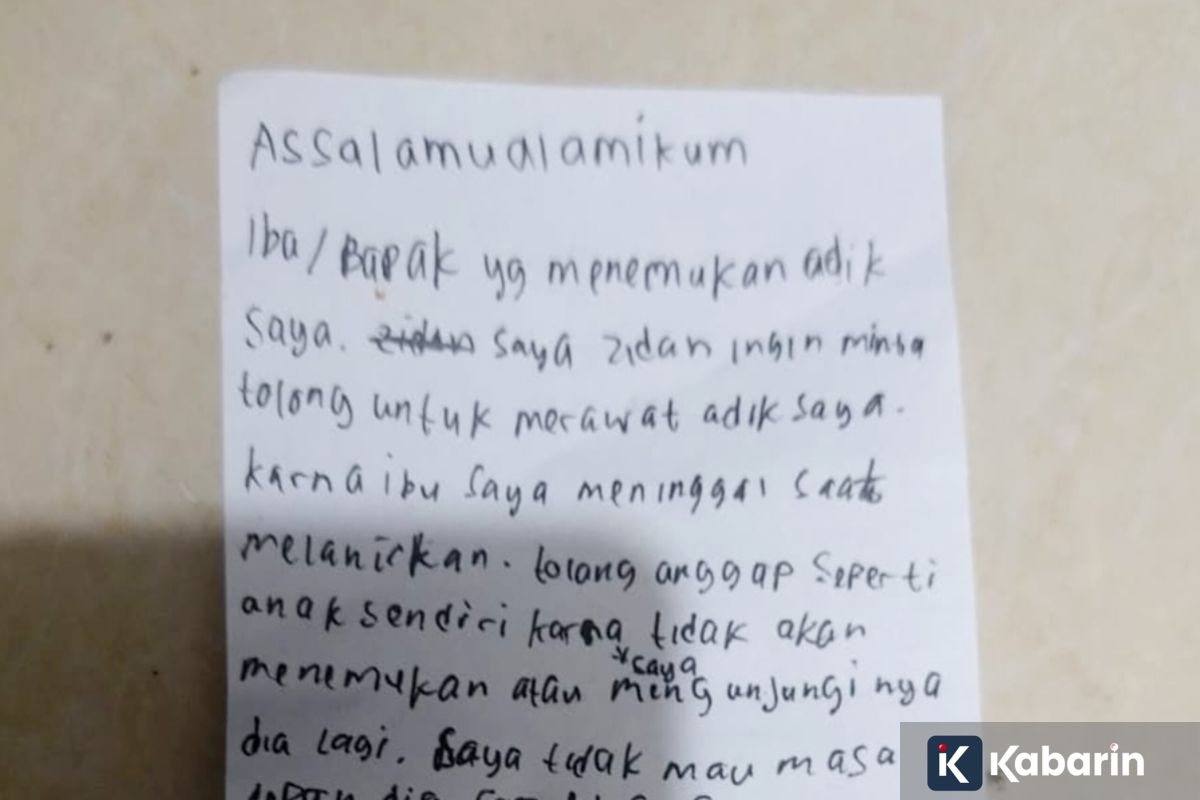 Assalamualamikum
Iba/Bapak yg menemukan adik
saya. zidan saya zidan ingin minta
tolong untuk merawat adik saya.
karna ibu saya meninggal saat
melanirkan. tolong anggap seperti
anak sendiri karna tidak akan
*saya
menemukan atau mengunjungi nya
dia lagi. Saya tidak mau masa
depan dia
Kabarin